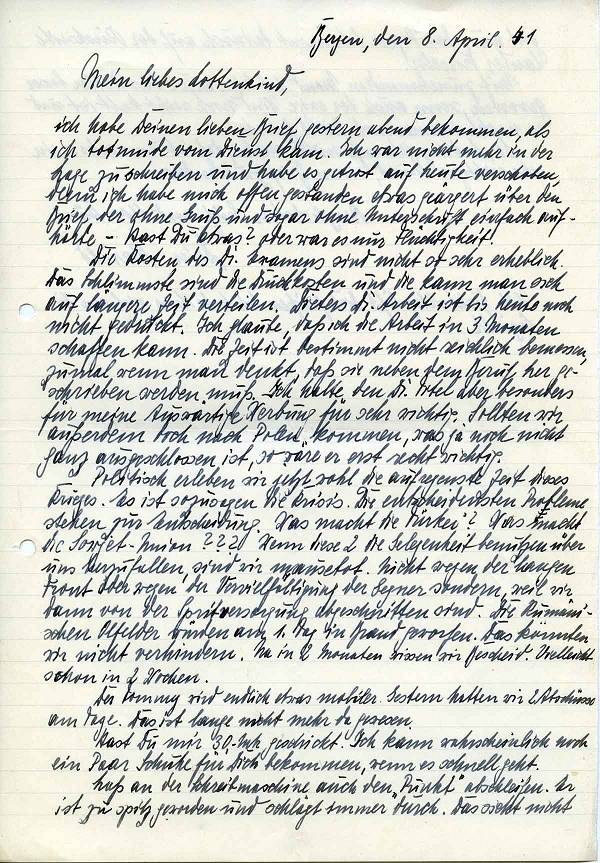 Bergen, den 8. April. 41
Mein liebes Lottenkind,
ich habe Deinen lieben Brief gestern abend bekommen, als
ich totmüde vom Dienst kam. Ich war nicht mehr in der
Lage zu schreiben und habe es getrost auf heute verschoben,
denn ich habe mich offen gestanden etwas geärgert über den
Brief, der ohne Gruß und sogar ohne Unterschrift einfach auf-
hörte – Hast Du etwas? oder war es nur Flüchtigkeit.
Die Kosten des Dr. Examens sind nicht so sehr erheblich.
Das Schlimmste sind die Druckkosten und die kann man sich
auf längere Zeit verteilen. Dieters Dr. Arbeit ist bis heute noch
nicht gedruckt. Ich glaube, daß ich die Arbeit in 3 Monaten
schaffen kann. Die Zeit ist bestimmt nicht reichlich bemessen,
zumal wenn man denkt, daß sie neben dem Beruf her ge-
schrieben werden muß. Ich halte den Dr. Titel aber besonders
für meine Auswärtige Werbung für sehr wichtig. Sollten wir
außerdem doch nach Polen kommen, was ja noch nicht
ganz ausgeschlossen ist, so wäre er erst recht wichtig.
Politisch erleben wir jetzt wohl die aufregenste Zeit dieses
Krieges. Es ist sozusagen die Krisis. Die entscheidensten Probleme
stehen zur Entscheidung. Was macht die Türkei? Was macht
die Sowjet-Union ??? Wenn diese 2 die Gelegenheit benutzen über
uns herzufallen, sind wir mausetot. Nicht wegen der langen
Front oder wegen der Vervielfältigung der Gegner sondern, weil wir
dann von der Spritversorgung abgeschnitten sind. Die Rumäni-
schen Ölfelder würden am 1. Tag in Brand geworfen. Das könnten
wir nicht verhindern. Na in 2 Monaten wissen wir Bescheid. Vielleicht
schon in 2 Wochen.
Der Tommy wird endlich etwas mobiler. Gestern hatten wir 2 Abschüsse
am Tage. Das ist lange nicht mehr da gewesen.
Hast Du mir 30.- Mk geschickt. Ich kann wahrscheinlich noch
ein Paar Schuhe für Dich bekommen, wenn es schnell geht.
Laß an der Schreibmaschine auch den "Punkt" abschleifen. Er
ist zu spitz geworden und schlägt immer durch. Das sieht nicht